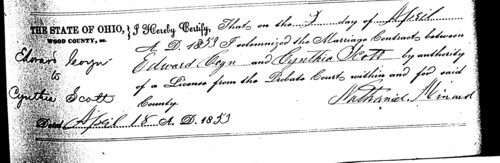 THE STATE OF OHIO, } I Hereby Certify, That on the 3 day of April
WOOD COUNTY, ss.
A. D. 1853 I solemnized the Marriage Contract between
Edward
to
Cynthia Scott
Edward and Cynthia Scott by authority
of a License from the Probate Court within and for said
County.
Nathaniel Minard
Dated April 18 A. D. 1853